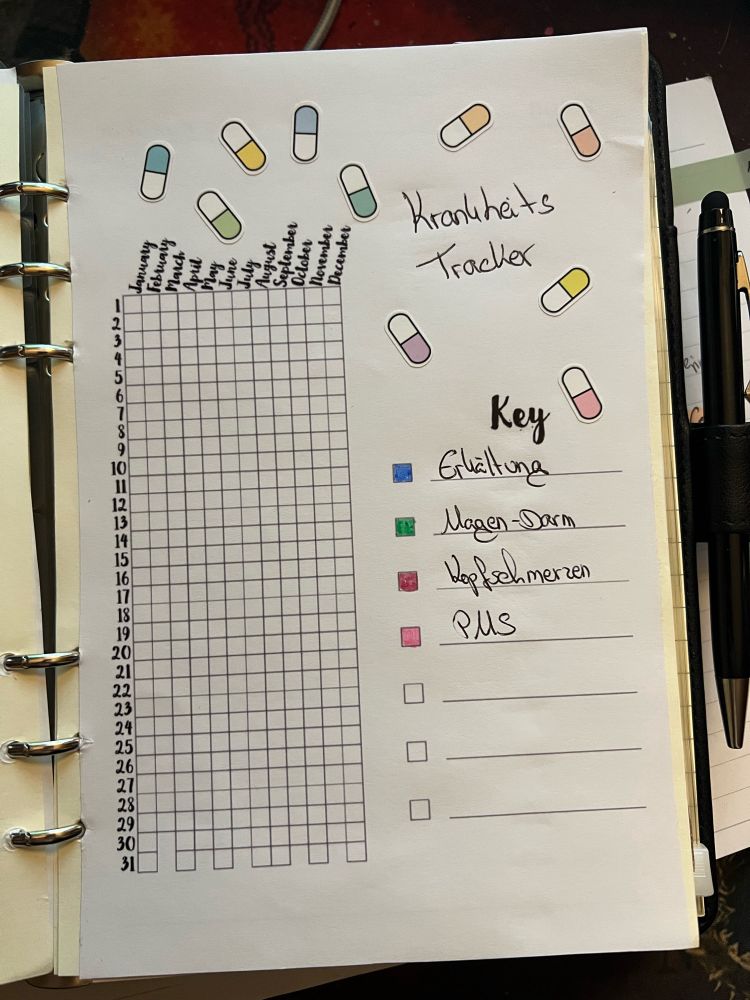 Krankheits
Tracker
January
February
March
April
May
June
July
August
September
October
November
December
1
2
3
4
5
6
7
8
9
10
11
12
13
14
15
16
17
18
19
20
21
22
23
24
25
26
27
28
29
30
31
Key
Erkältung
Magen-Darm
Kopfschmerzen
PMS